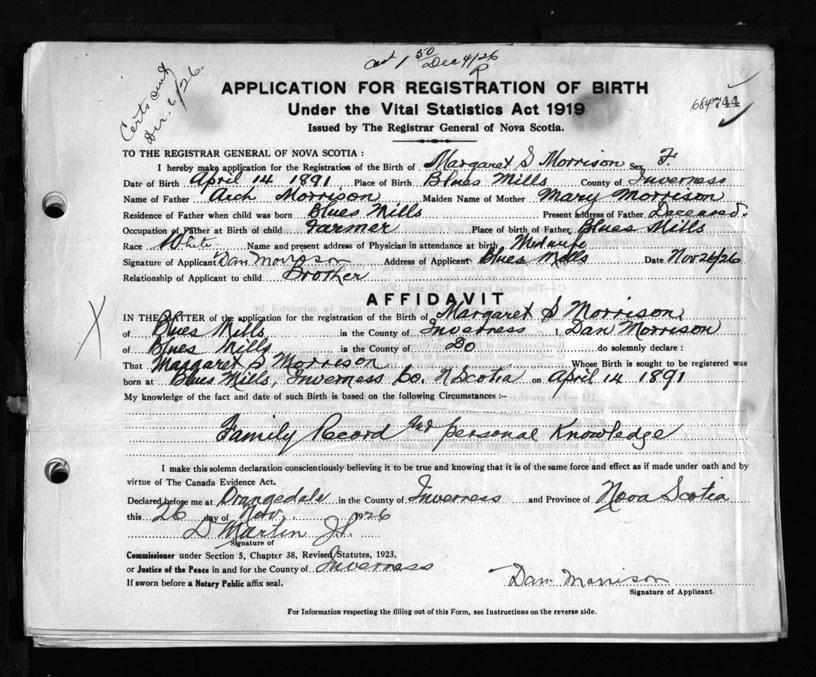 1 50 Dec 4/26
Certs
Dec. 6/26.
APPLICATION FOR REGISTRATION OF BIRTH
Under the Vital Statistics Act 1919
Issued by The Registrar General of Nova Scotia.
744
TO THE REGISTRAR GENERAL OF NOVA SCOTIA:
I hereby make application for the Registration of the Birth of Margaret S Morrison Sex F
Date of Birth April 14 1891 Place of Birth Blues Mills County of Inverness
Name of Father Arch Morrison Maiden Name of Mother Mary Morrison
Residence of Father when child was born Blues Mills Present address of Father Deceased.
Occupation of Father at Birth of child Farmer Place of birth of Father Blues Mills
Race White Name and present address of Physician in attendance at birth Midwife
Signature of Applicant Dan Morrison Address of Applicant Blues Mills Date Nov 26/26
Relationship of Applicant to child Brother
AFFIDAVIT
IN THE MATTER of the application for the registration of the Birth of Margaret S Morrison
of Blues Mills in the County of Inverness I, Dan Morrison
of Blues Mills in the County of Do do solemnly declare:
That Margaret S Morrison Whose Birth is sought to be registered was
born at Blues Mills, Inverness Co. N Scotia on April 14 1891
My knowledge of the fact and date of such Birth is based on the following Circumstances :-
Family Record and personal Knowledge
I make this solemn declaration conscientiously believing it to be true and knowing that it is of the same force and effect as if made under oath and by
virtue of The Canada Evidence Act.
Declared before me at Orangedale in the County of Inverness and Province of Nova Scotia
this 26 day of Nov. 1926
D Martin J.P.
Signature of
Commissioner under Section 5, Chapter 38, Revised Statutes, 1923,
or Justice of the Peace in and for the County of Inverness
If sworn before a Notary Public affix seal.
Dan Morrison
Signature of Applicant.
For Information respecting the filling out of this Form, see Instructions on the reverse side.